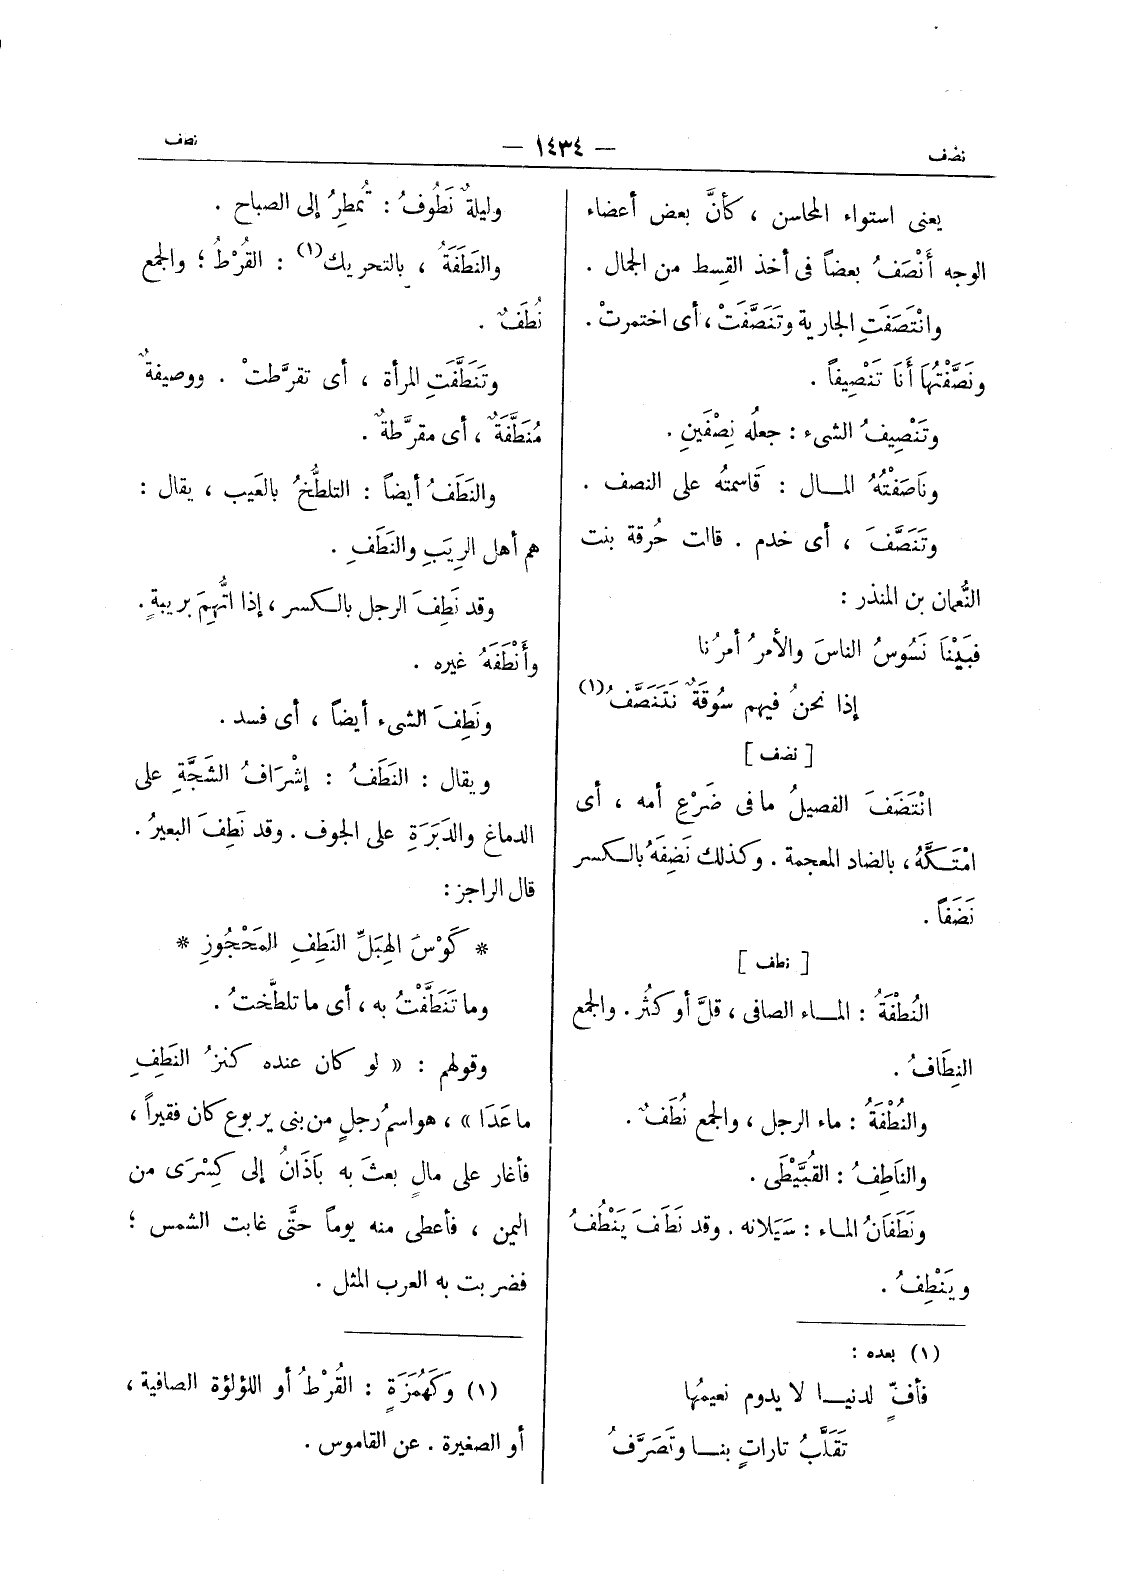 نضف
— ١٤٣٤ —
نصف
يعنى استواء المحاسن ، كأنَّ بعض أعضاء
الوجه أَنْصَفُ بعضاً فى أخذ القِسط من الجمال .
وانْتَصَفَتِ الجارية وتَنَصَّفَتْ ، أى اختمرتْ .
ونَصَّفْتُهَا أَنَا تَنْصِيفاً .
وتَنْصِيفُ الشىء : جعلُه نِصْفَينِ .
ونَاصَفْتُهُ المال : قَاسمتُه على النصف .
وتَنَصَّفَ ، أى خدم . قالت حُرقة بنت
النُّعمان بن المنذر :
فبَيْنَا نَسُوسُ الناسَ والأمرُ أمرُنا
إذا نحنُ فيهم سُوقَةٌ نَتَنَصَّفُ (١)
[ نضف ]
انْتَضَفَ الفصيلُ مافى ضَرْعِ أمه ، أى
امْتَكَّهُ ، بالضاد المعجمة . وكذلك نَضِفَهُ بالكسر
نَضَفاً .
[ نطف ]
النُطْفَةُ : الماء الصافى ، قلَّ أو كثُر . والجمع
النِطَافُ .
والنُطْفَةُ : ماء الرجل ، والجمع نُطَفٌ .
والنَاطِفُ : القُبَّيْطَى .
ونَطَفَانُ الماء : سَيَلانه . وقد نَطَفَ يَنْطُفُ
ويَنْطِفُ .
(١) بعده :
فأفٍّ لدنيا لا يدوم نعيمُها
تَقَلَّبُ تاراتٍ بنا وتَصَرَّفُ
وليلةٌ نَطُوفُ : تُمطِرُ إلى الصباح .
والنَطَفَةُ ، بالتحريك (١) : القُرْطُ ؛ والجمع
نُطَفٌ .
وتَنَطَّفَتِ المرأة ، أى تقرَّطتْ . ووصيفةٌ
مُنَطَّفَةٌ ، أى مقرَّطةٌ .
والنَطَفُ أيضاً : التلطُّخُ بالعَيب ، يقال :
هم أهل الرِيَبِ والنَطَفِ .
وقد نَطِفَ الرجل بالكسر ، إذا اتُّهِمَ بريبةٍ .
وأَنْطَفَهُ غيره .
ونَطِفَ الشىء أيضاً ، أى فسد .
ويقال : النَطَفُ : إشْرَافُ الشَجَّةِ على
الدماغ والدَبَرَةِ على الجوف . وقد نَطِفَ البعيرُ .
قال الراجز :
* كَوْسَ الهِبَلِّ النَطِفِ المَحْجُوزِ *
وما تَنَطَّفْتُ به ، أى ما تلطَّختُ .
وقولهم : « لو كان عنده كنزُ النَطِفِ
ما عَدَا » ، هو اسمُ رجلٍ من بنى يربوع كان فقيراً ،
فأغار على مالٍ بعثَ به بَاذَانُ إلى كِسْرَى من
اليمن ، فأعطى منه يوماً حتَّى غابت الشمس ؛
فضربت به العرب المثل .
(١) وَكَهُمَزَةٍ : القُرْطُ أو اللؤلؤة الصافية ،
أو الصغيرة . عن القاموس .